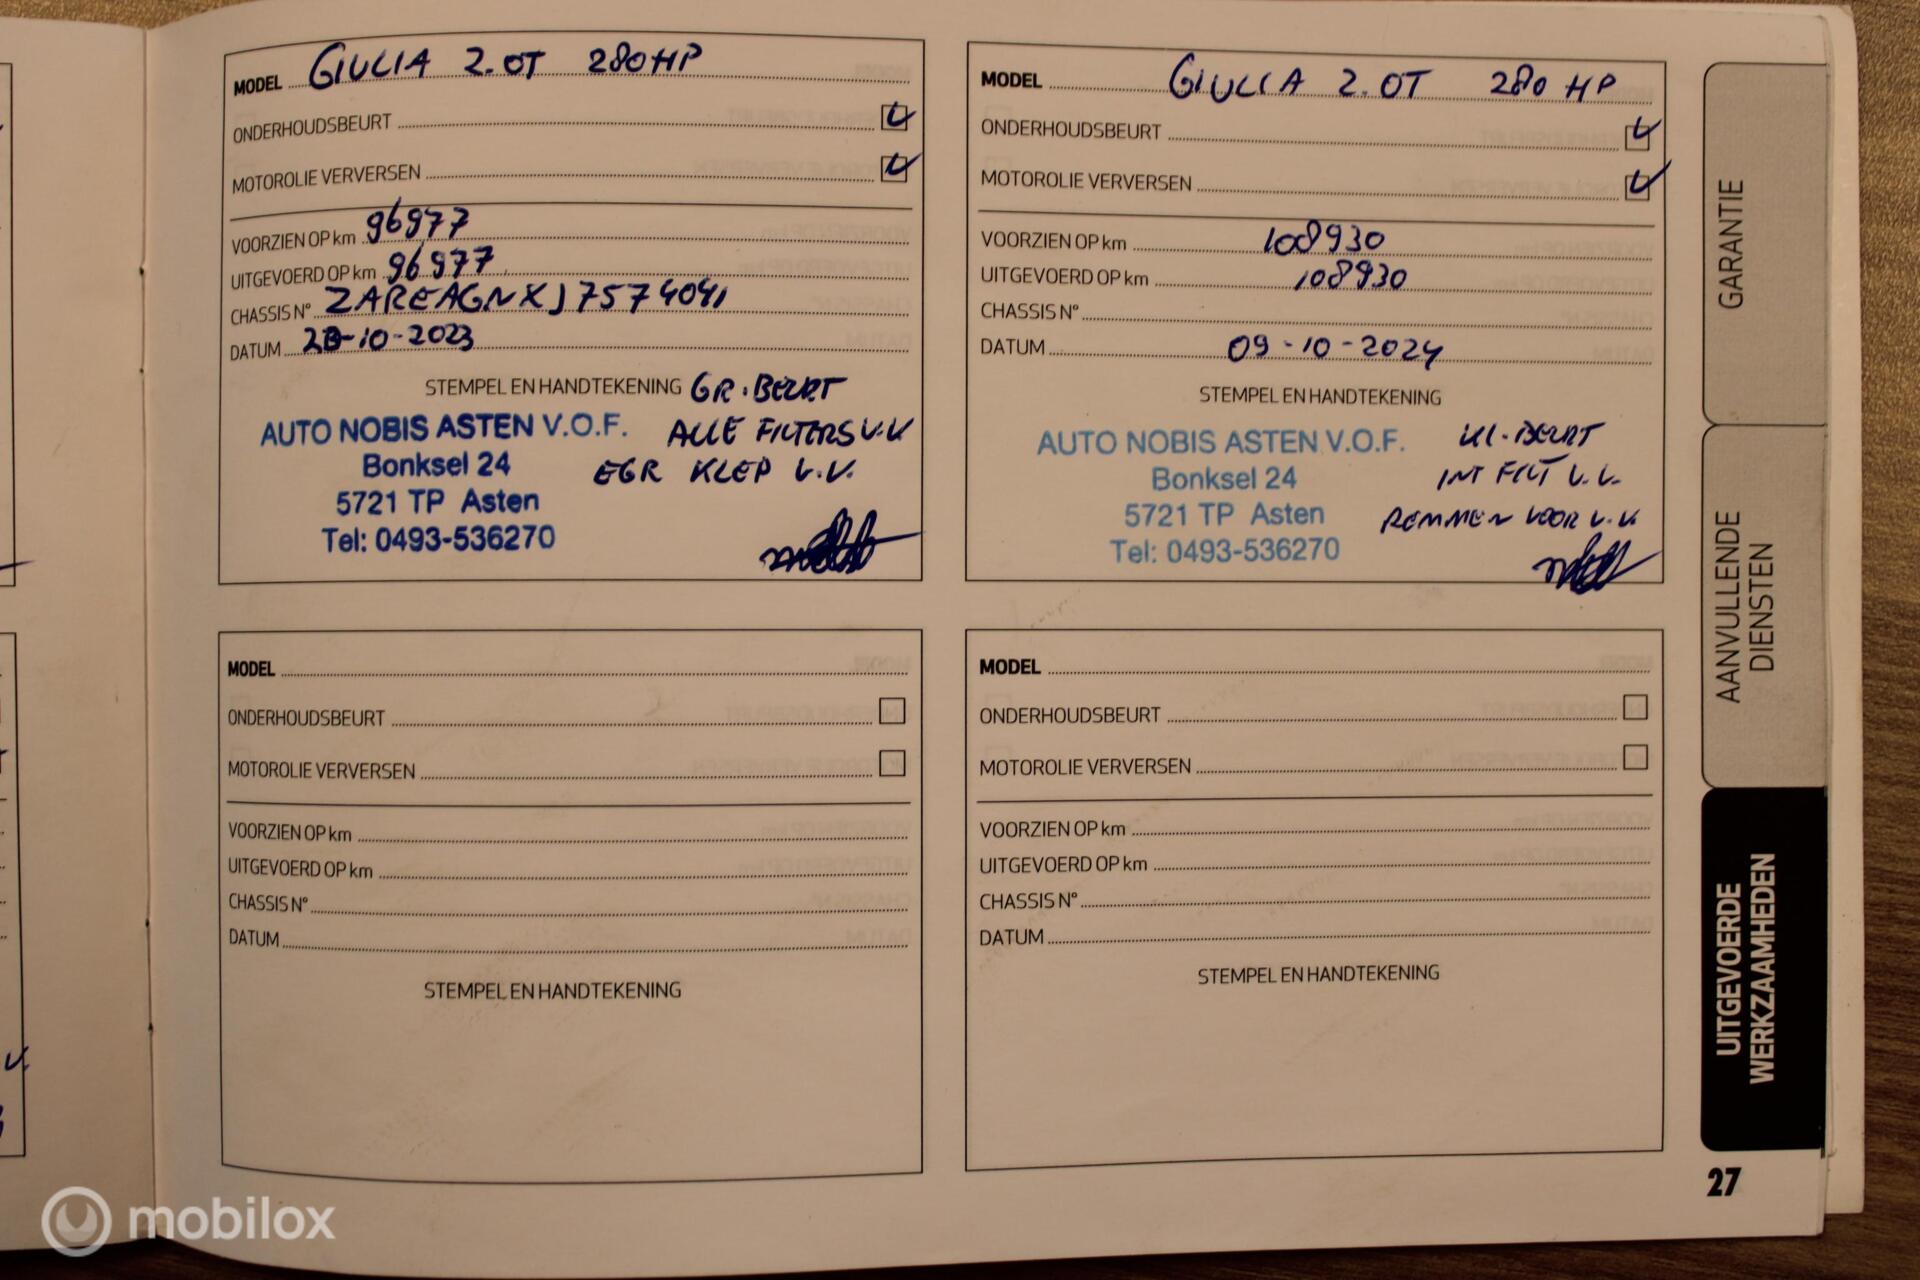 MODEL GIULIA 2.0T 280HP
ONDERHOUDSBEURT
MOTOROLIE VERVERSEN
VOORZIEN OP km 96977
UITGEVOERD OP km 96977
CHASSIS N° ZAREAGNXJ7574041
DATUM 20-10-2023
STEMPEL EN HANDTEKENING GR. BEURT
AUTO NOBIS ASTEN V.O.F. ALLE FILTERS V.V
Bonksel 24 EGR KLEP V.V.
5721 TP Asten
Tel: 0493-536270
MODEL GIULIA 2.0T 280 HP
ONDERHOUDSBEURT
MOTOROLIE VERVERSEN
VOORZIEN OP km 108930
UITGEVOERD OP km 108930
CHASSIS N°
DATUM 09-10-2024
STEMPEL EN HANDTEKENING
AUTO NOBIS ASTEN V.O.F. KL. BEURT
Bonksel 24 INT FILT V.V.
5721 TP Asten REMMEN VOOR V.V.
Tel: 0493-536270
MODEL
ONDERHOUDSBEURT
MOTOROLIE VERVERSEN
VOORZIEN OP km
UITGEVOERD OP km
CHASSIS N°
DATUM
STEMPEL EN HANDTEKENING
MODEL
ONDERHOUDSBEURT
MOTOROLIE VERVERSEN
VOORZIEN OP km
UITGEVOERD OP km
CHASSIS N°
DATUM
STEMPEL EN HANDTEKENING
GARANTIE
AANVULLENDE
DIENSTEN
UITGEVOERDE
WERKZAAMHEDEN
27
mobilox